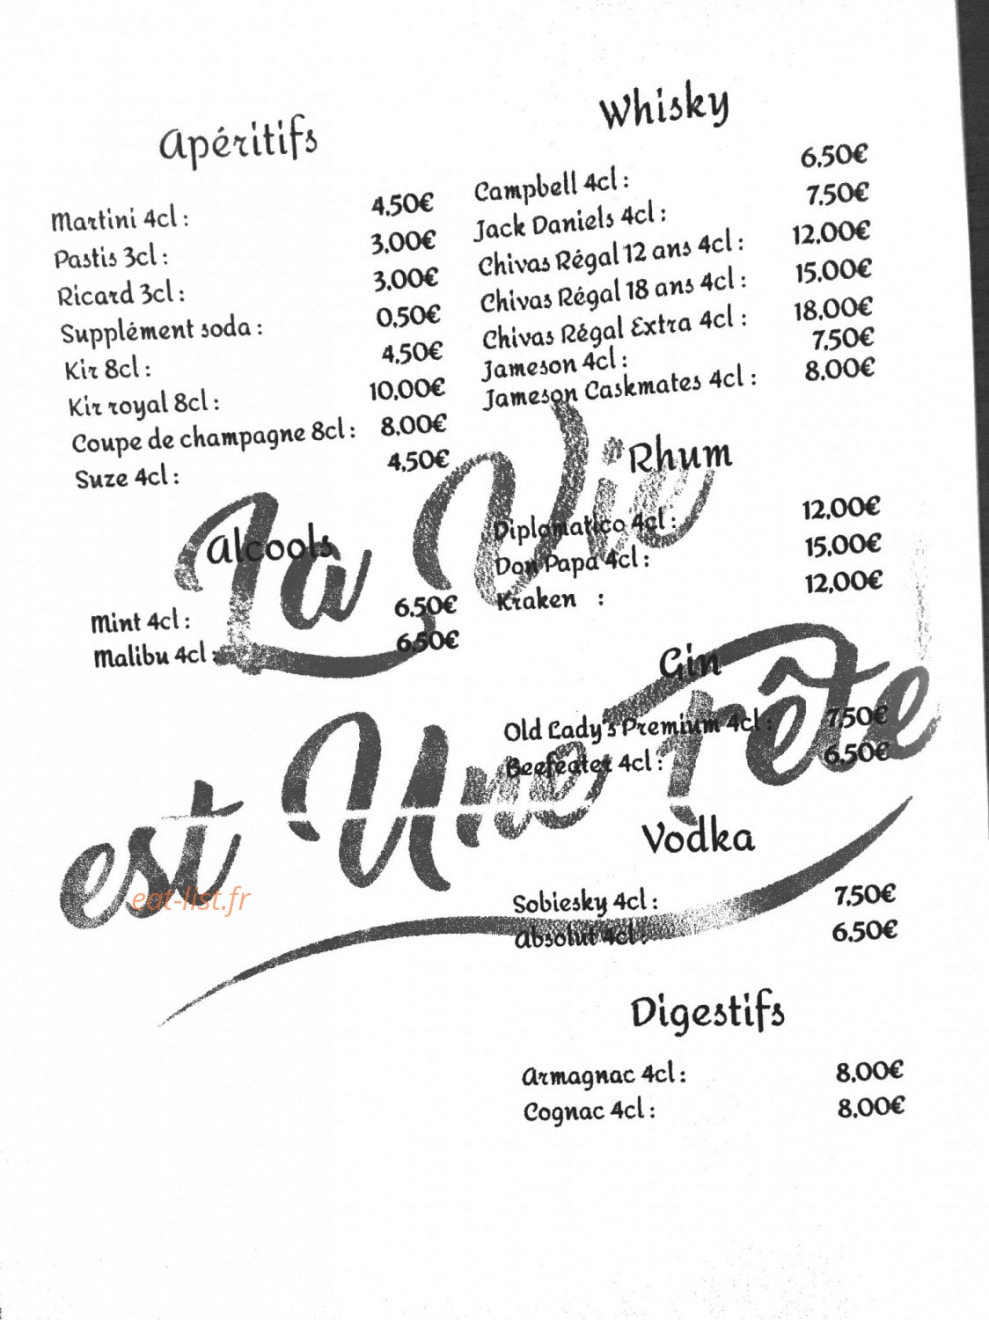 Apéritifs
Martini 4cl : 4,50€
Pastis 3cl : 3,00€
Ricard 3cl : 3,00€
Supplément soda : 0,50€
Kir 8cl : 4,50€
Kir royal 8cl : 10,00€
Coupe de champagne 8cl : 8,00€
Suze 4cl : 4,50€
Alcools
Mint 4cl : 6,50€
Malibu 4cl : 6,50€
Whisky
Campbell 4cl : 6,50€
Jack Daniels 4cl : 7,50€
Chivas Régal 12 ans 4cl : 12,00€
Chivas Régal 18 ans 4cl : 15,00€
Chivas Régal Extra 4cl : 18,00€
Jameson 4cl : 7,50€
Jameson Caskmates 4cl : 8,00€
Rhum
Diplomatico 4cl : 12,00€
Don Papa 4cl : 15,00€
Kraken : 12,00€
Gin
Old Lady's Premium 4cl : 7,50€
Beefeater 4cl : 6,50€
Vodka
Sobiesky 4cl : 7,50€
Absolut 4cl : 6,50€
Digestifs
Armagnac 4cl : 8,00€
Cognac 4cl : 8,00€
La Vie
est Une Fête
eat-list.fr